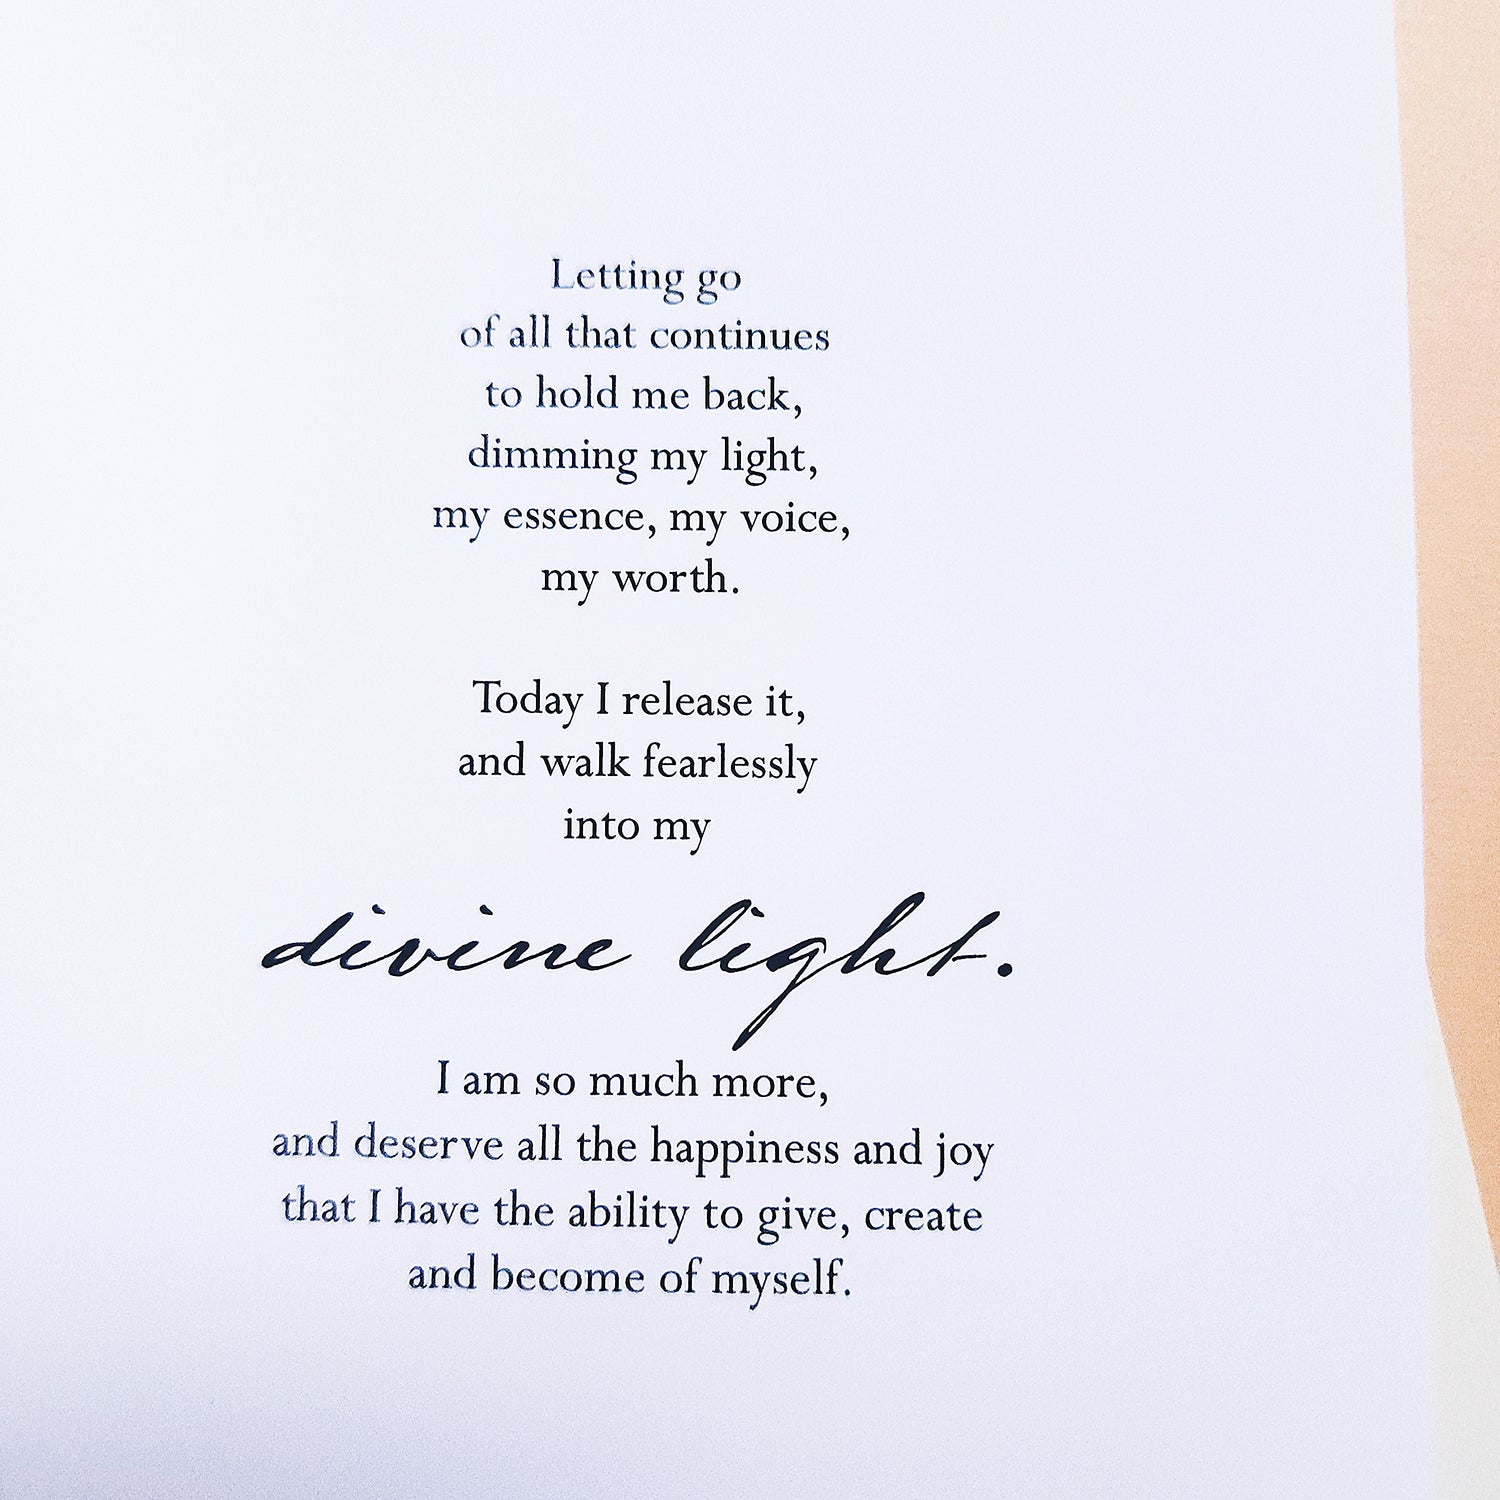 Letting go
of all that continues
to hold me back,
dimming my light,
my essence, my voice,
my worth.
Today I release it,
and walk fearlessly
into my
divine light.
I am so much more,
and deserve all the happiness and joy
that I have the ability to give, create
and become of myself.